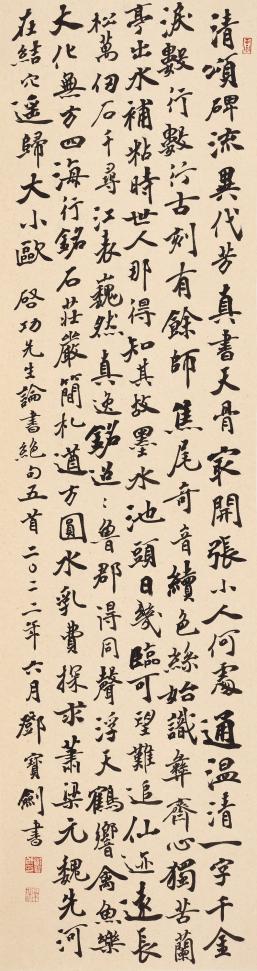 清頌碑流異代芳真書天骨最開張小人何處通温清一字千金
淚數行數行古刻有餘師焦尾奇音續色絲始識彝齋心獨苦蘭
亭出水補粘時世人那得知其故墨水池頭日幾臨可望難追仙迹遠長
松萬仞石千尋江表巍然真逸銘迢迢魯郡得同聲浮天鶴響禽魚樂
大化無方四海行銘石莊嚴簡札遒方圓水乳費探求蕭梁元魏先河
在結穴遥歸大小歐 啓功先生論書絕句五首二〇二二年六月鄧寶劍書